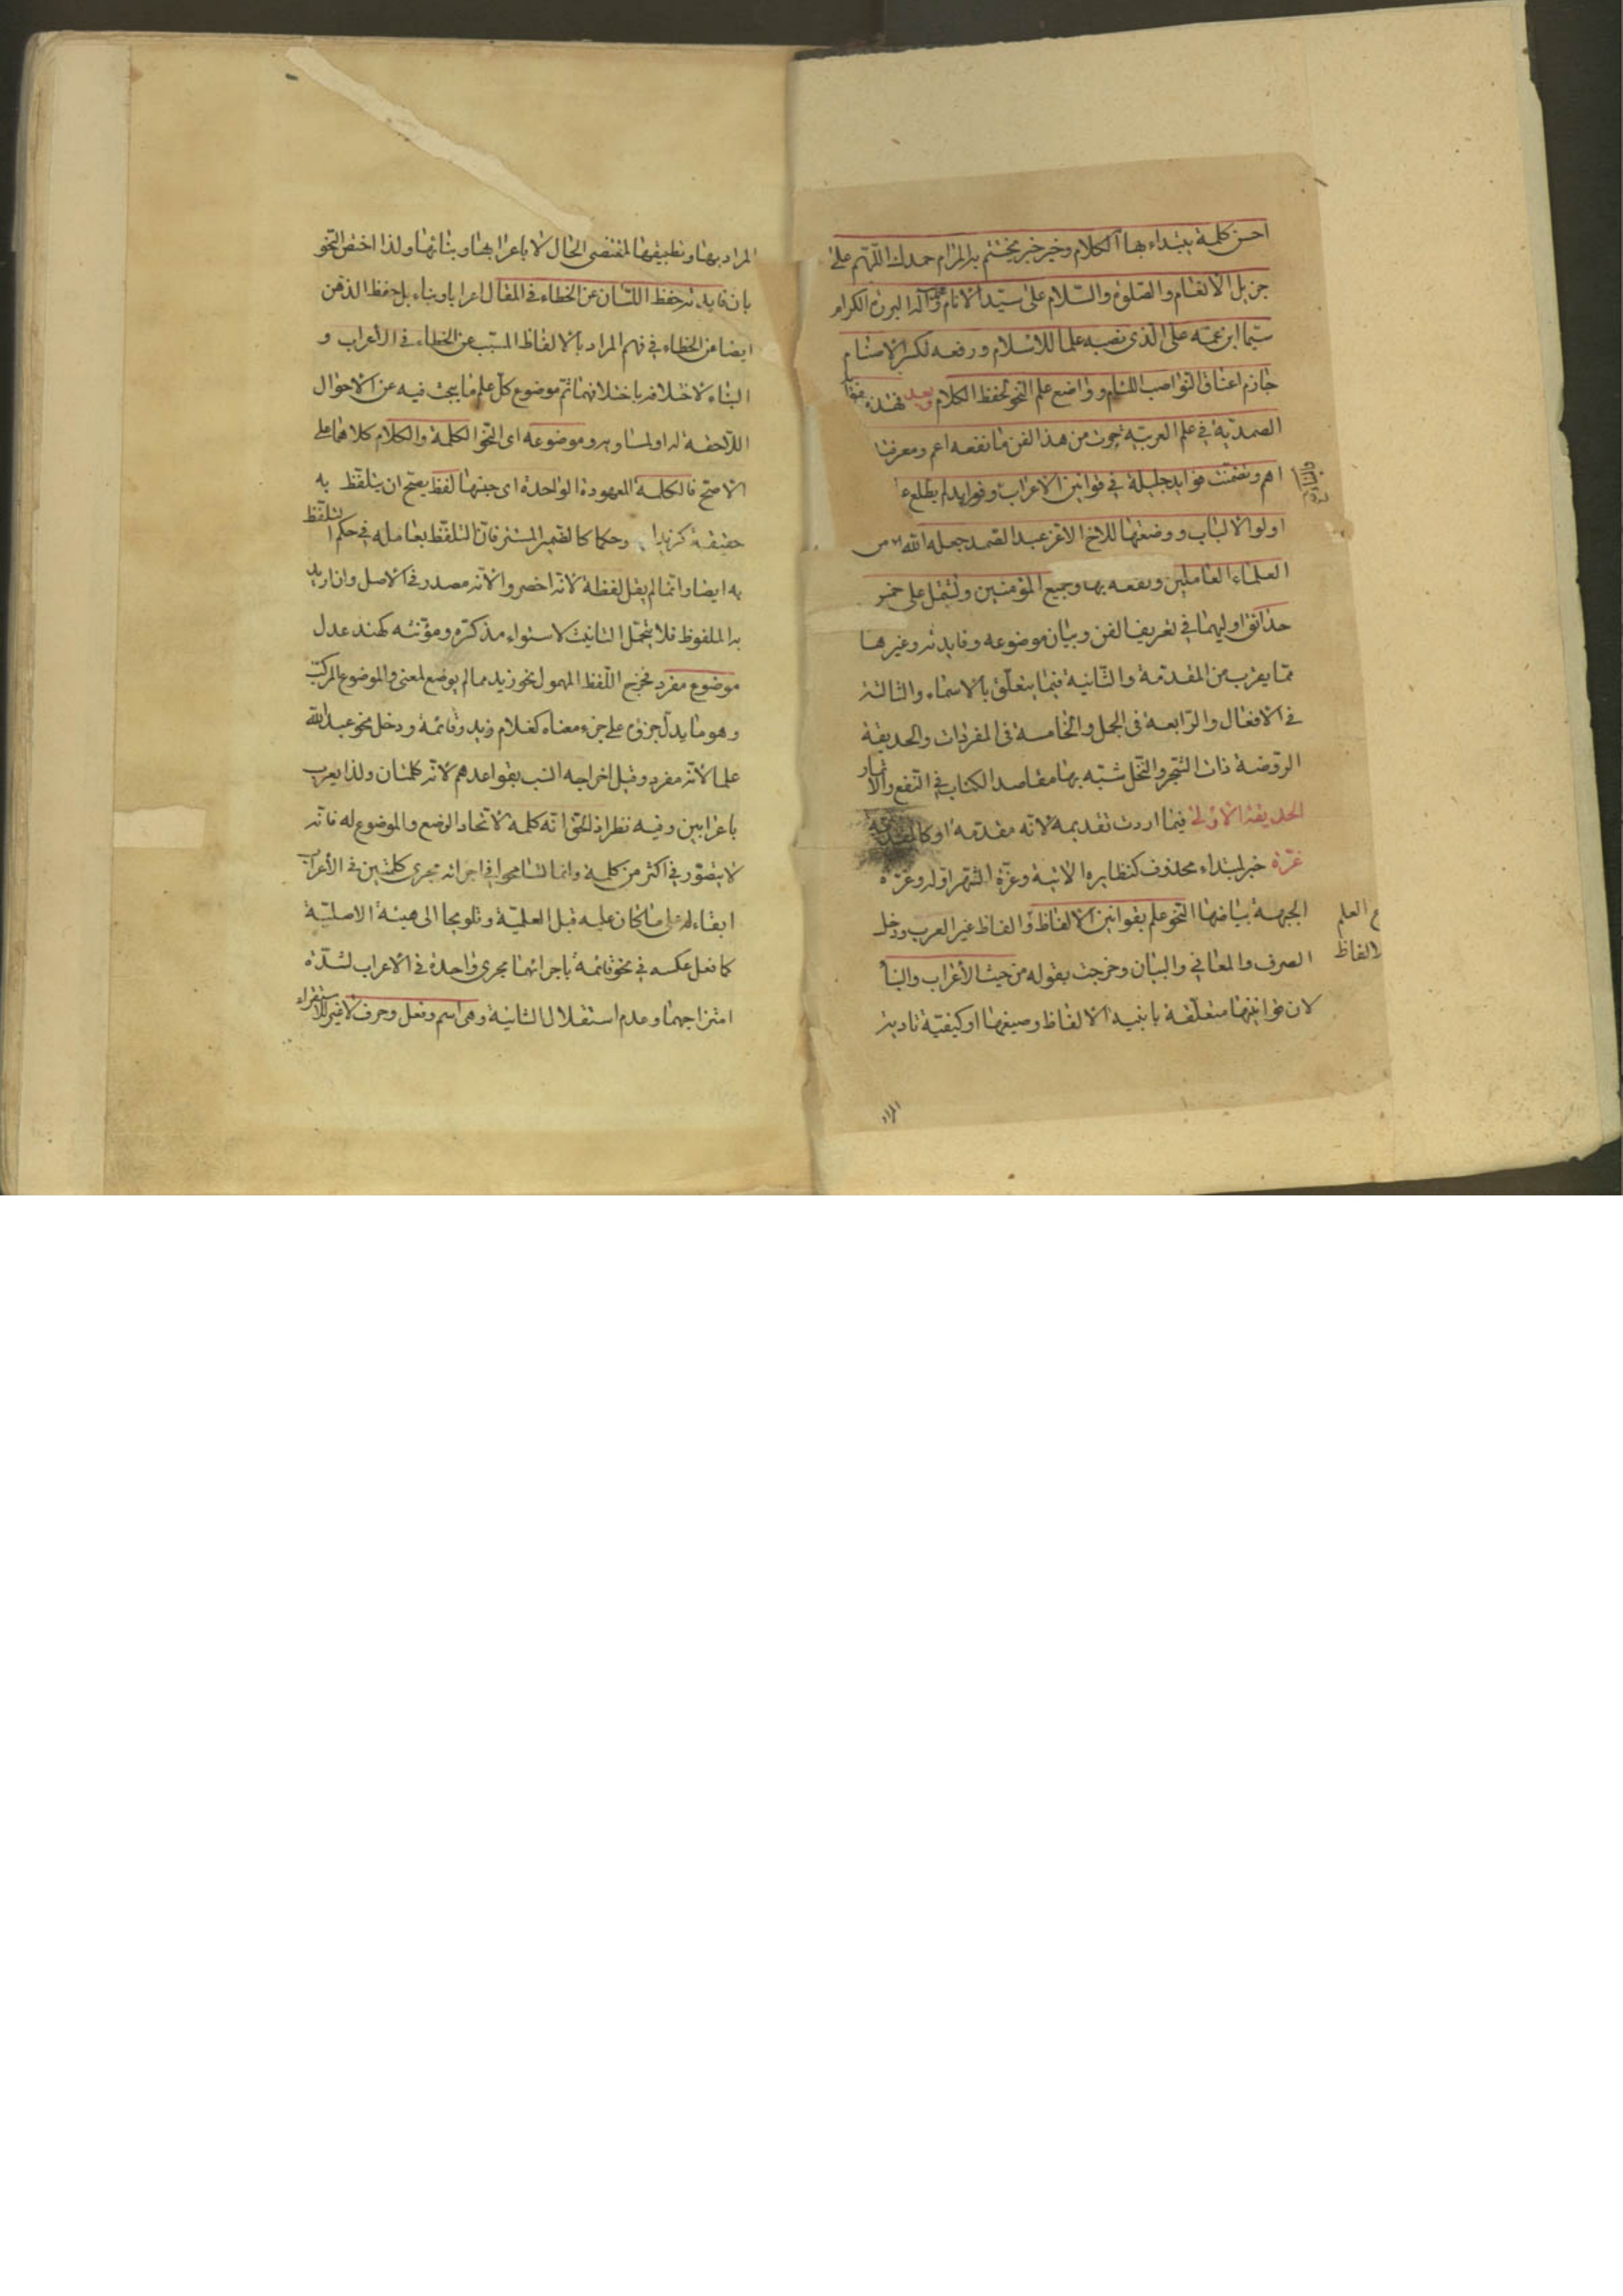 احسن كلمة يبتداء بها الكلام وخير خبر يختتم به المرام حمدك اللّهم على
جزيل الانعام والصلوة والسّلام على سيّد الانام محمّد وآله البررة الكرام
سيّما ابن عمّه علىّ الّذى نصبه علما للاسلام ورفعه لكسر الاصنام
جازم اعناق النّواصب اللئام وواضع علم النحو لحفظ الكلام وبعد فهذه
الصمديّة في علم العربيّة حوت من هذا الفن ما نفعه اعم ومعرفتها
اهم وتضمّنت فوايد جليلة في قوانين الاعراب وفرايد لم يطلع ع
اولوا الالباب ووضعتها للاخ الاعز عبد الصّمد جعله الله من
العلماء العاملين ونفعه بها وجميع المؤمنين وتشتمل على خمس
حدائق اوليهما في تعريف الفن وبيان موضوعه وفايدته وغيرها
ممّا يقرب من المقدّمة والثّانية فيما يتعلّق بالاسماء والثالثة
في الافعال والرّابعة فى الجمل والخامسة فى المفردات والحديقة
الروّضة ذات الشّجر والنّخل شبّه بها مقاصد الكتاب في النّفع والاثمار
الحديقة الاولى فيما اردت تقديمه لانّه مقدّمة او كالمقدّمة
غرّة خبر لمبتداء محذوف كنظايره الاتية وغرّة الشّهر اوله وغرّة
الجبهة بياضها النّحو علم بقوانين الالفاظ والفاظ غير العرب ودخل
ع العلم
الالفاظ
الصرف والمعاني والبيان وخرجت بقوله من حيث الأعراب والبناء
لان قوانينها متعلّقة بابنية الالفاظ وصيغها او كيفيّة تادية
المراد
المراد بها وتطبيقها لمقتضى الحال لا باعرابها وبنائها ولذا اختص النّحو
بان فايدته حفظ اللّسان عن الخطاء في المقال اعرابا وبناء بل حفظ الذهن
ايضا عن الخطاء في فهم المراد بالالفاظ المسبّب عن الخطاء في الأعراب و
البناء لاختلافه باختلافهما ثمّ موضوع كلّ علم ما يبحث فيه عن الاحوال
اللّاحقة له اولمساويه وموضوعه اى النّحو الكلمة والكلام كلاهما على
الاصحّ فالكلمة المعهودة الواحدة اى جنسها لفظ يصحّ ان يتلفّظ به
حقيقة كزيد او حكما كالضمير المستتر فانّ التلفّظ بعامله في حكم التلفّظ
به ايضا وانّما لم يقل لفظة لانّه اخصر والانّه مصدر في الاصل وان اريد
به الملفوظ فلا يتحمّل التانيث لاستواء مذكّره ومؤنّثه كهند عدل
موضوع مفرد فخرج اللّفظ المهمول نحو زيد مما لم يوضع لمعنى والموضوع المركّب
وهو ما يدلّ جزؤه على جزء معناه كغلام زيد وقائمة ودخل نحو عبد الله
علما لانّه مفرد وقيل اخراجه انسب بقواعدهم لانّه كلمتان ولذا يعرب
باعرابين وفيه نظر اذ الحقّ انّه كلمة لاتّحاد الوضع والموضوع له فانّه
لا يتصوّر في اكثر من كلمة وانما تسامحوا في اجرائه مجرى كلمتين في الأعراب
ابقاء له على ما كان عليه قبل العلميّة وتلويحا الى هيئة الاصليّة
كما فعل عكسه في نحو قائمة باجرائهما مجرى واحدة في الاعراب لشدّة
امتزاجهما وعدم استقلال الثانية وهى اسم وفعل وحرف لا غير للاستقراء